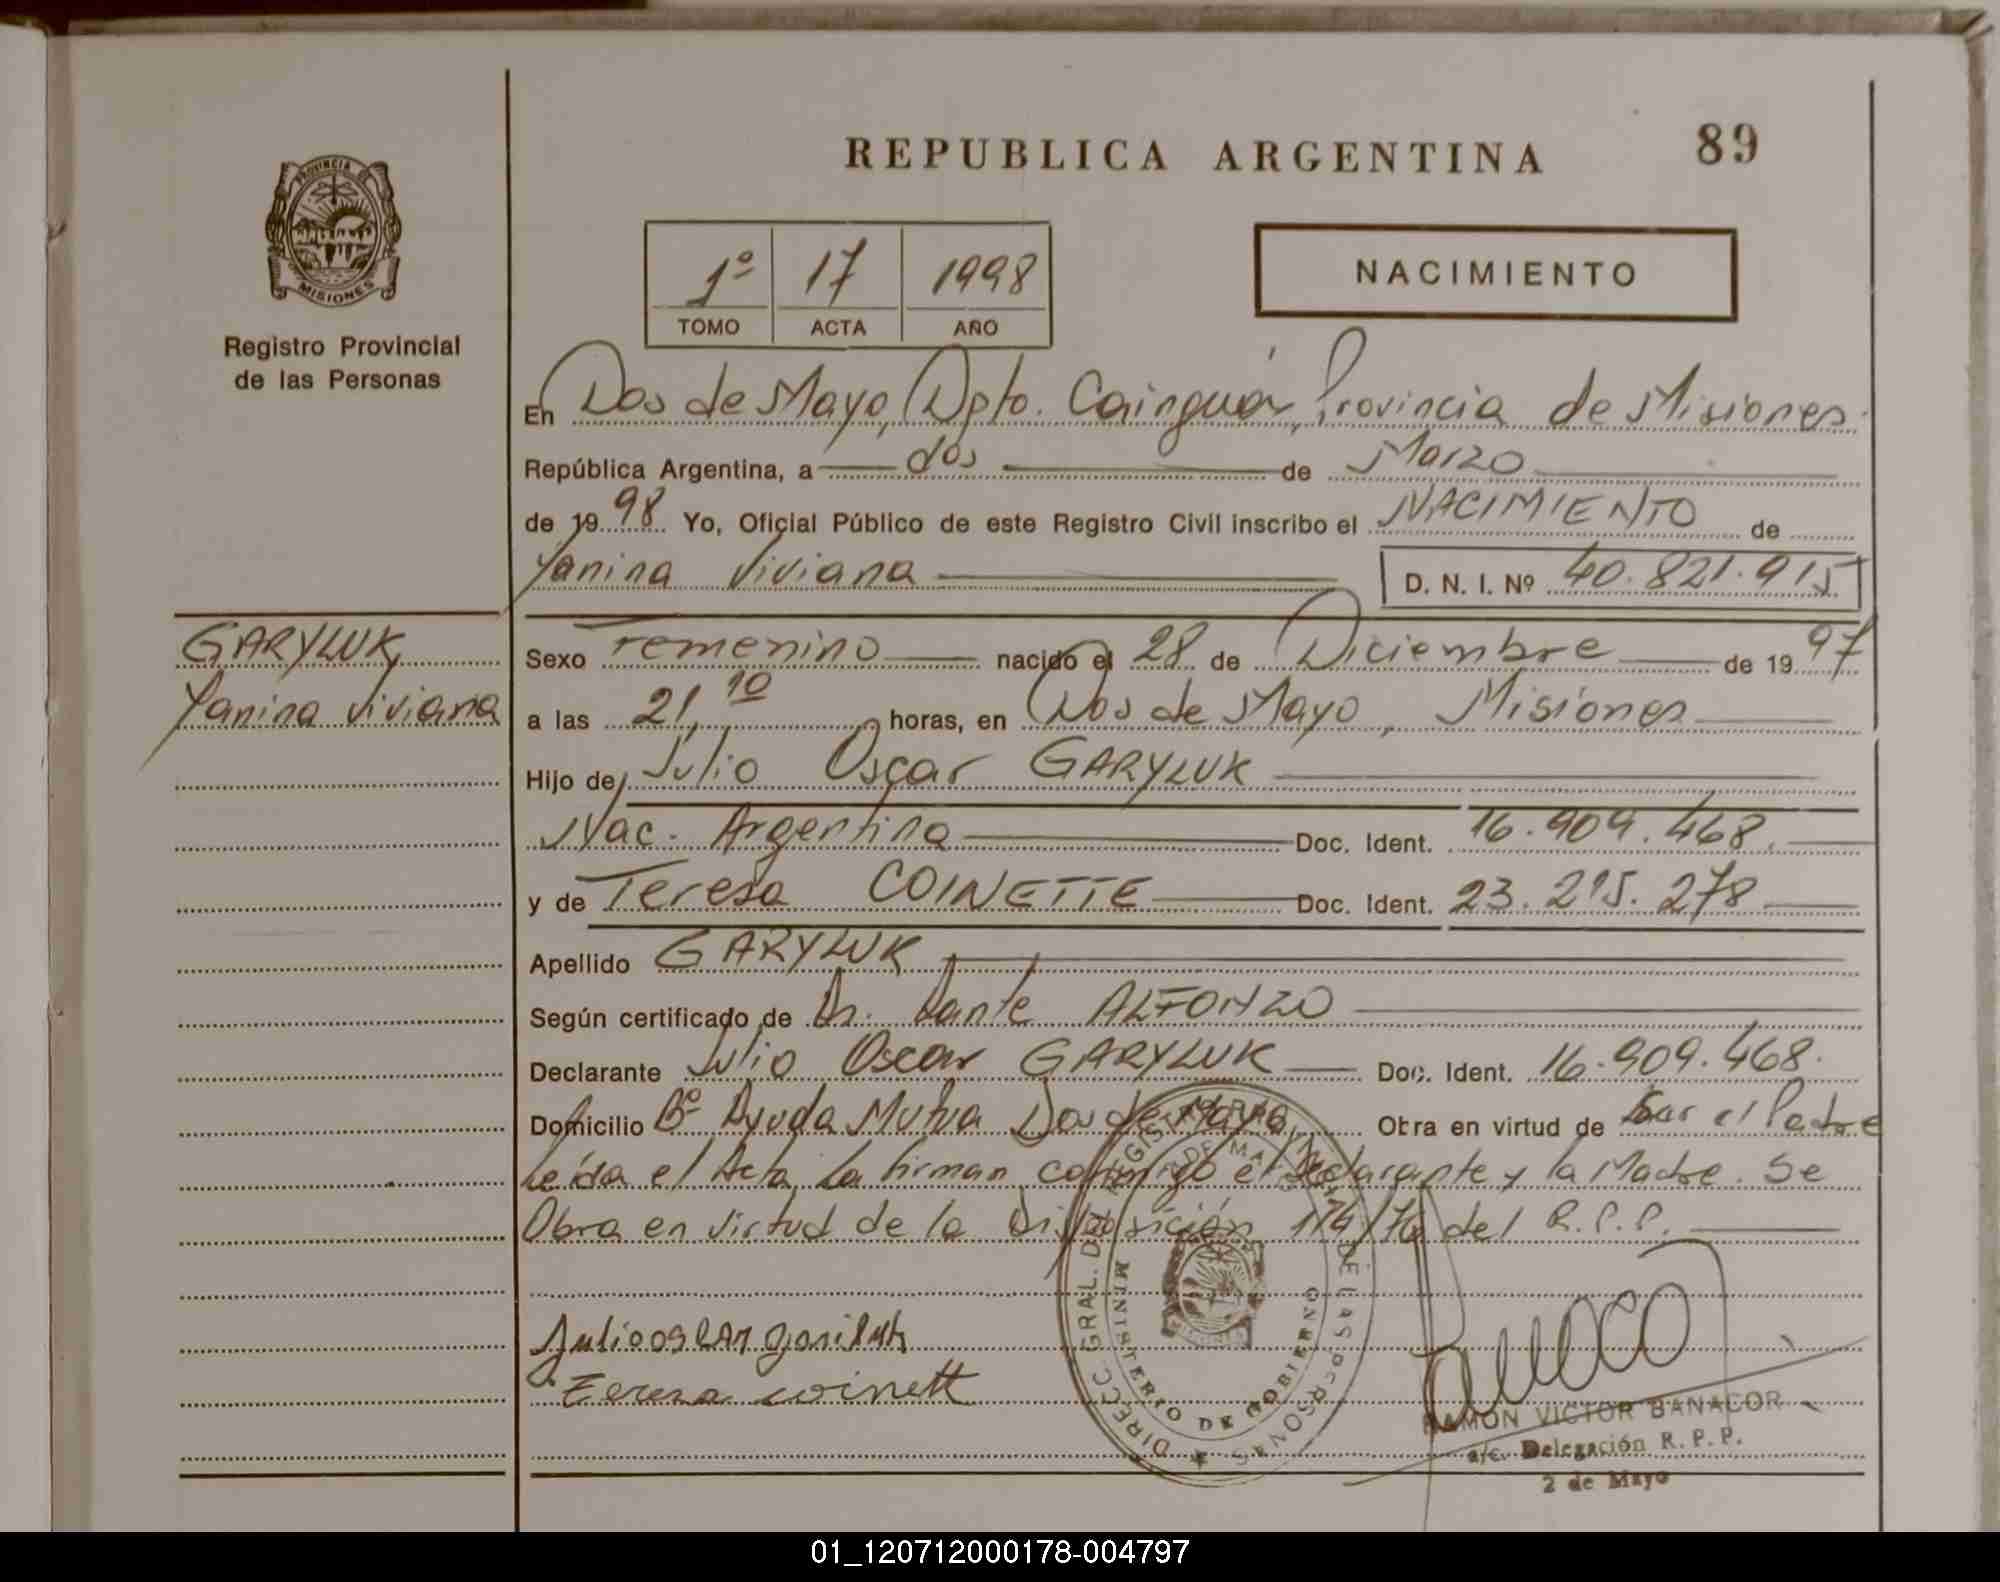 REPUBLICA ARGENTINA
89
PROVINCIA DE
MISIONES
Registro Provincial
de las Personas
1º 17 1998
TOMO ACTA AÑO
NACIMIENTO
En Dos de Mayo, Dpto. Cainguás, Provincia de Misiones.
República Argentina, a dos de Marzo
de 1998 Yo, Oficial Público de este Registro Civil inscribo el NACIMIENTO de
Yanina Viviana D. N. I. Nº 40.821.915
GARYLUK
Yanina Viviana
Sexo Femenino nacido el 28 de Diciembre de 1997
a las 21,10 horas, en Dos de Mayo, Misiones
Hijo de Julio Oscar GARYLUK
Nac. Argentina Doc. Ident. 16.909.468.
y de Teresa COINETTE Doc. Ident. 23.215.278
Apellido GARYLUK
Según certificado de Dr. Dante ALFONZO
Declarante Julio Oscar GARYLUK Doc. Ident. 16.909.468.
Domicilio Bº Ayuda Mutua Dos de Mayo, Obra en virtud de Ser el Padre
Leída el Acta La firman conmigo el Declarante y la Madre. Se
Obra en virtud de la Disposición 174/76 del R.P.P.
DIRECC. GRAL. DEL REGISTRO PROVINCIAL DE LAS PERSONAS
MINISTERIO DE GOBIERNO
RAMON VICTOR BANACOR
a/c. Delegación R. P. P.
2 de Mayo
01_120712000178-004797